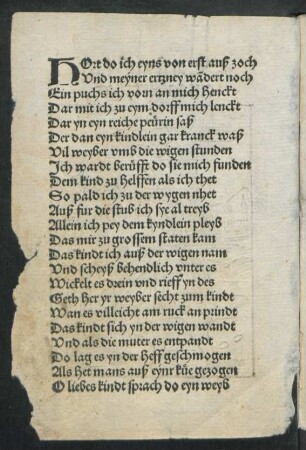 HOrt do ich eyns von erst auß zoch
Vnd meyner ertzney wãdert noch
Ein puchs ich vorn an mich henckt
Dar mit ich zu eym dorff mich lenckt
Dar yn eyn reiche peürin saß
Der dan eyn kindlein gar kranck waß
Vil weyber vmb die wigen stunden
Ich wardt berüfft do sie mich funden
Dem kind zu helffen als ich thet
So pald ich zu der wygen nhet
Auß für die stub ich sye al treyb
Allein ich pey dem kyndlein pleyb
Das mir zu grossem staten kam
Das kindt ich auß der wigen nam
Vnd scheyß behendlich vnter es
Wickelt es drein vnd rieff yn des
Geth her yr weyber secht zum kindt
Wan es villeicht am ruck an prindt
Das kindt sich yn der wigen wandt
Vnd als die muter es entpandt
Do lag es yn der heff geschmogen
Als het mans auß eynr küe gezogen
O liebes kindt sprach do eyn weyb